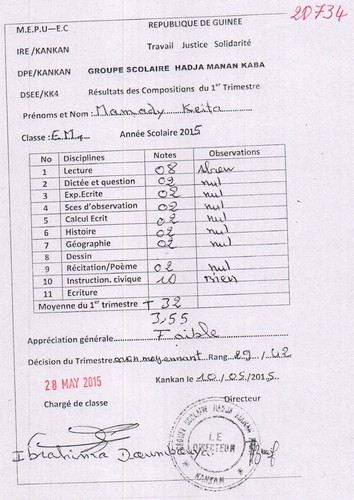 2D734
M.E.P.U—E.C REPUBLIQUE DE GUINEE
IRE /KANKAN Travail Justice Solidarité
DPE/KANKAN GROUPE SCOLAIRE HADJA MANAN KABA
DSEE/KK4 Résultats des Compositions du 1er Trimestre
Prénoms et Nom : Mamady Keita
Classe : E.M4 Année Scolaire 2015
No Disciplines Notes Observations
1 Lecture 08
2 Dictée et question 02 nul
3 Exp.Ecrite 02 nul
4 Sces d'observation 02 nul
5 Calcul Ecrit 02 nul
6 Histoire 02 nul
7 Géographie 02 nul
8 Dessin
9 Récitation/Poème 02 nul
10 Instruction. civique 10
11 Ecriture
Moyenne du 1er trimestre T 32
3,55
Appréciation générale Faible
Décision du Trimestre non moyennant Rang 29 / 42
28 MAY 2015 Kankan le 10 /05/2015
Chargé de classe Directeur
GROUPE SCOLAIRE HADJA MANAN
LE
DIRECTEUR
KANKAN
Ibrahima Doumbouya